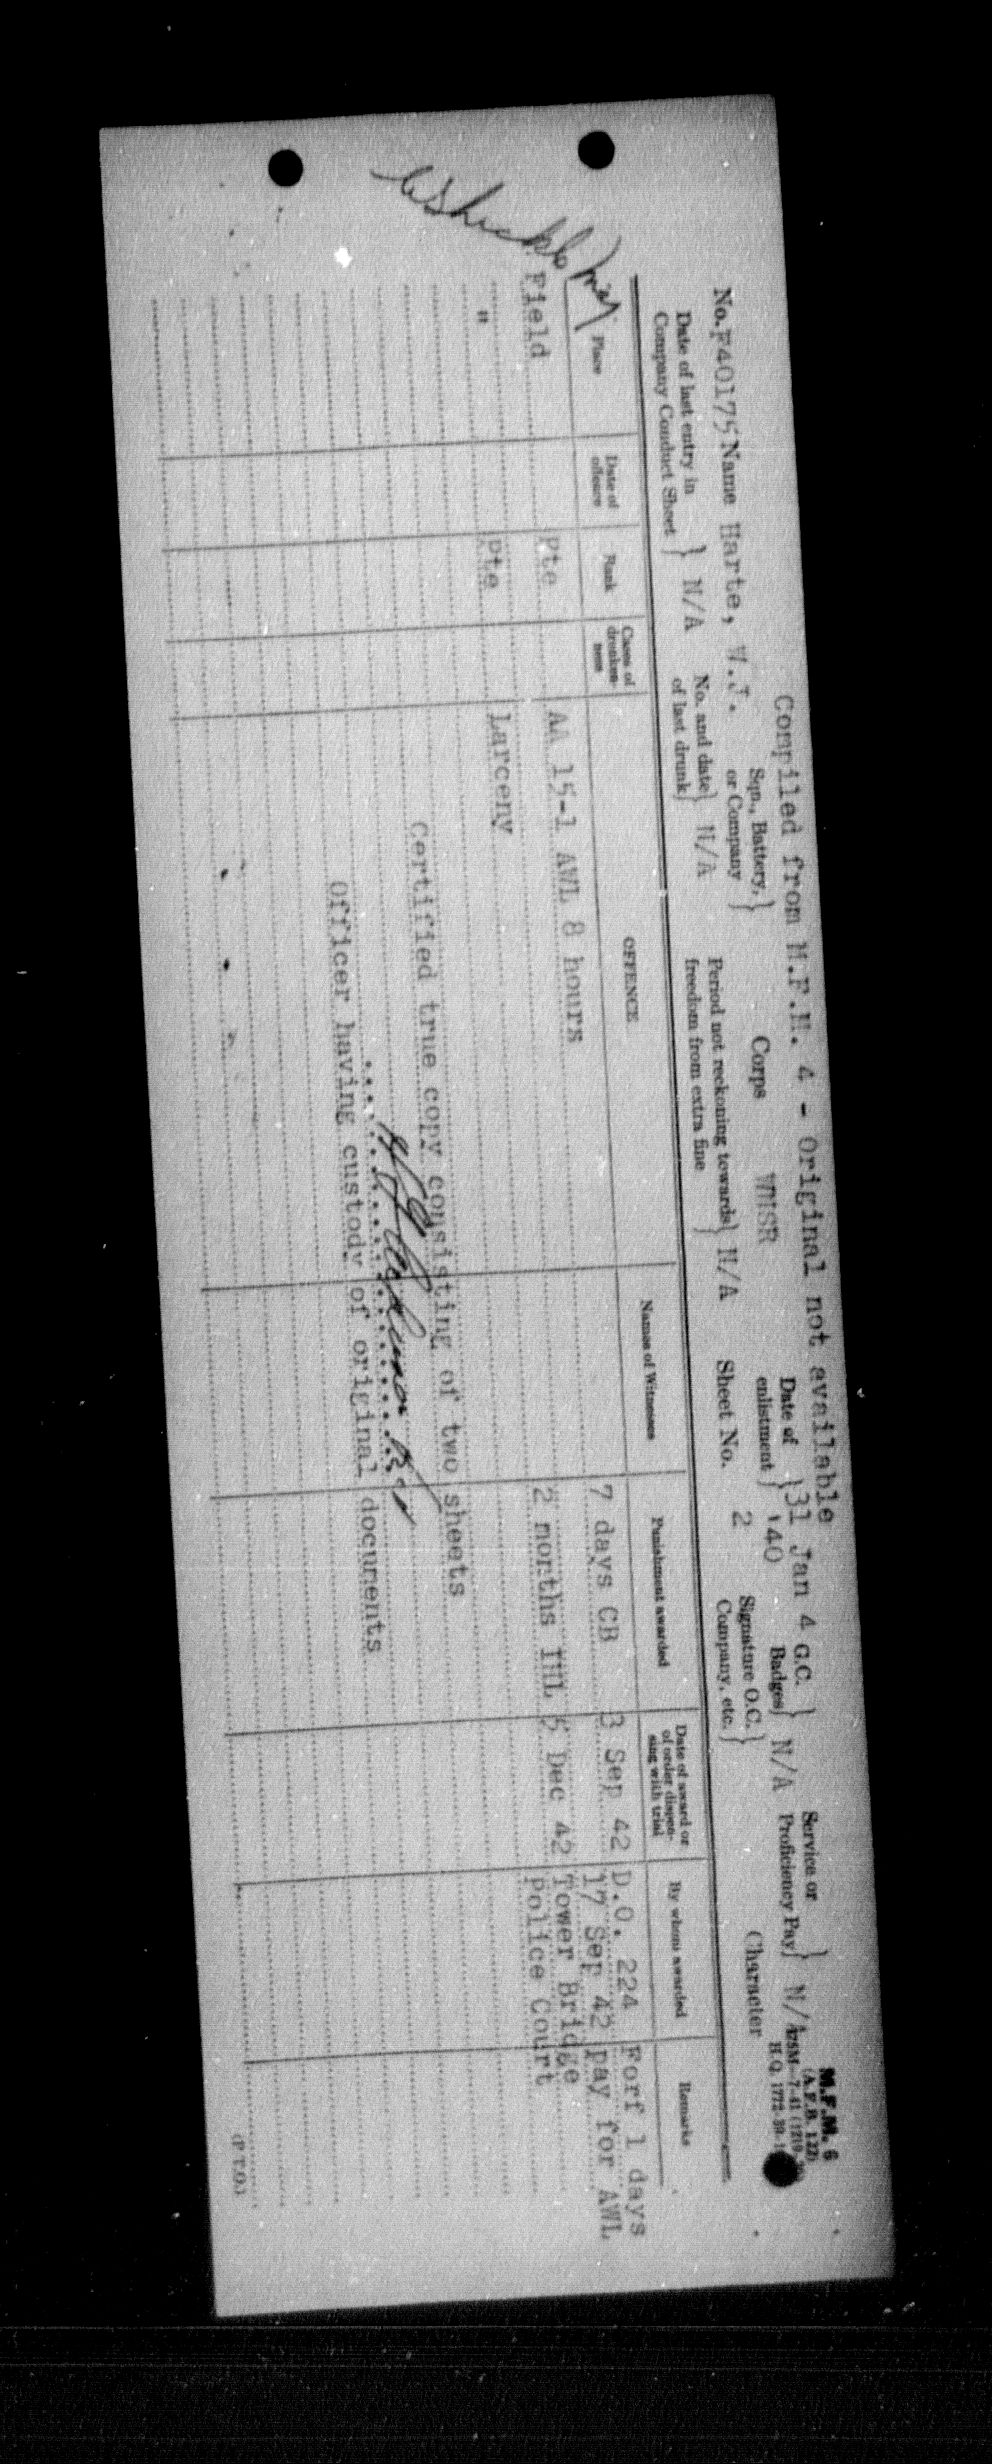 M.F.M. 6
(A.F.B. 122)
Compiled from M.F.M. 4 - Original not available
No. F40175 Name Harte, W.J. Sqn., Battery, or Company } Corps WNSR Date of enlistment } 31 Jan 40 G.C. Badges } N/A Service or Proficiency Pay } N/A
Date of last entry in Company Conduct Sheet } N/A No. and date of last drunk } N/A Period not reckoning towards freedom from extra fine } N/A Sheet No. 2 Signature O.C. Company, etc. } Character
Place Date of offence Rank Cases of drunkenness OFFENCE Names of Witnesses Punishment awarded Date of award or of order dispensing with trial By whom awarded Remarks
Field Pte AA 15-1 AWL 8 hours 7 days CB 3 Sep 42 D.O. 224 Forf 1 days
17 Sep 42 pay for AWL
" Pte Larceny 2 months IHL 5 Dec 42 Tower Bridge
Police Court
Certified true copy consisting of two sheets
Officer having custody of original documents
(P.T.O.)